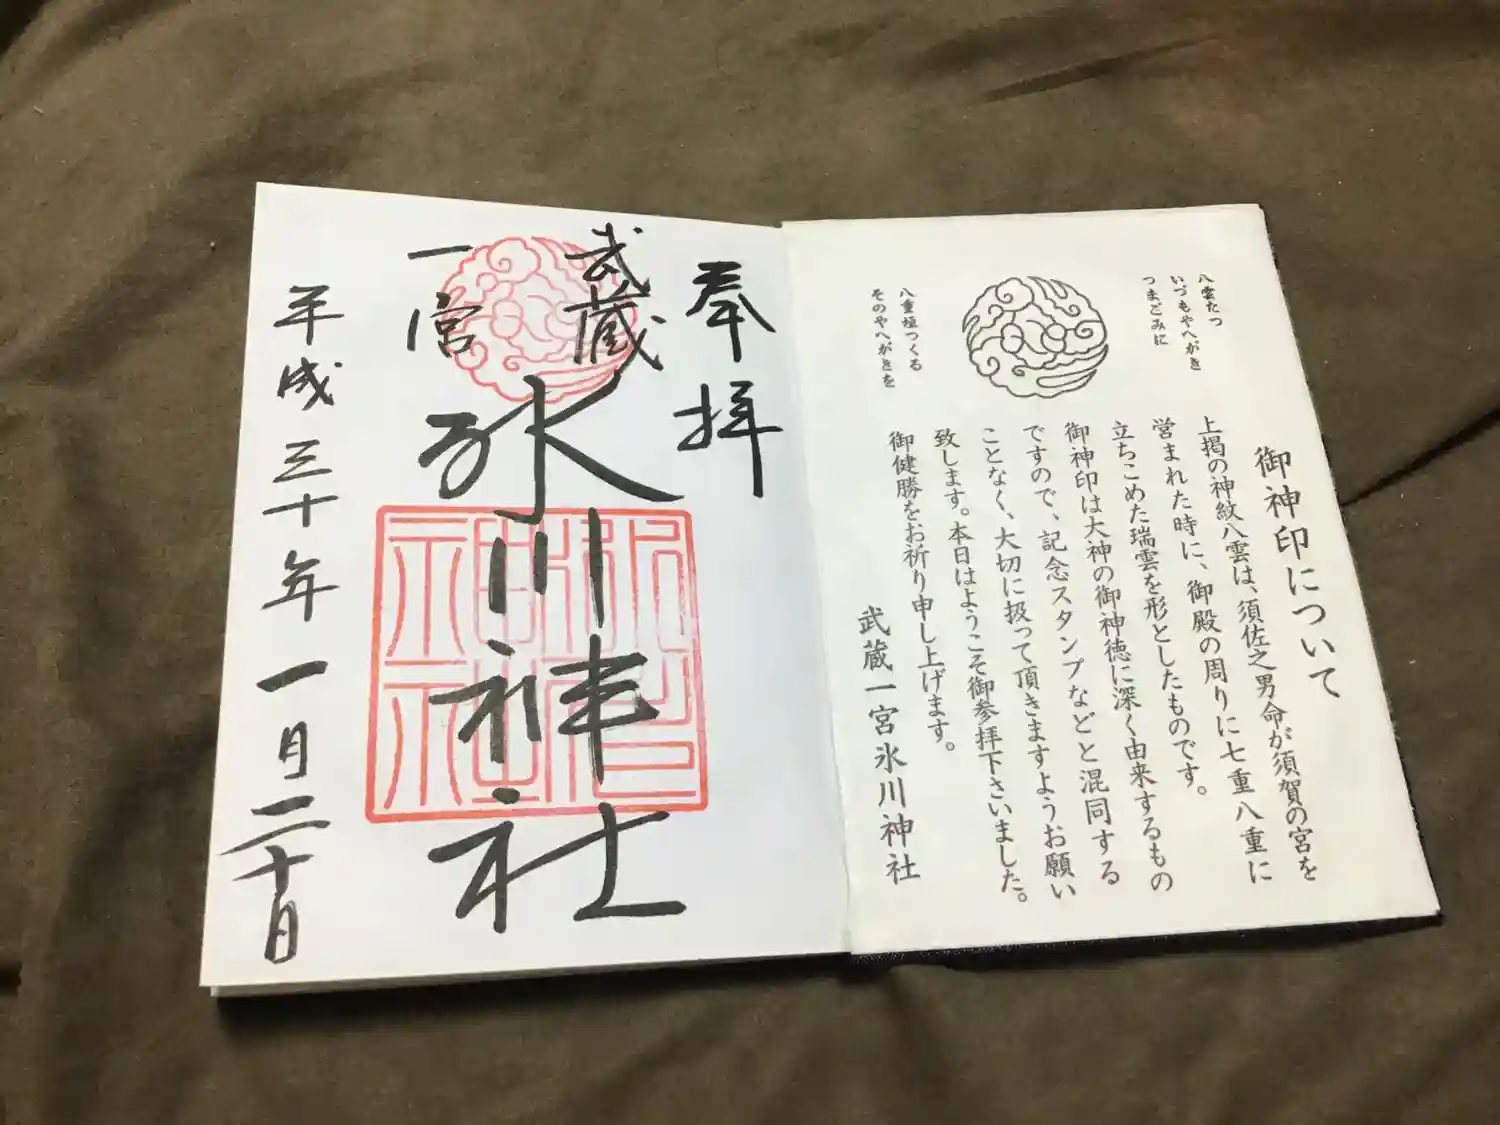 八雲たつ
いづもやへがき
つまごみに
八重垣つくる
そのやへがきを
御神印について
上掲の神紋八雲は、須佐之男命が須賀の宮を
営まれた時に、御殿の周りに七重八重に
立ちこめた瑞雲を形としたものです。
御神印は大神の御神徳に深く由来するもの
ですので、記念スタンプなどと混同する
ことなく、大切に扱って頂きますようお願い
致します。本日はようこそ御参拝下さいました。
御健勝をお祈り申し上げます。
武蔵一宮氷川神社
奉拝
武蔵
一宮
氷川神社
平成三十年一月二十日